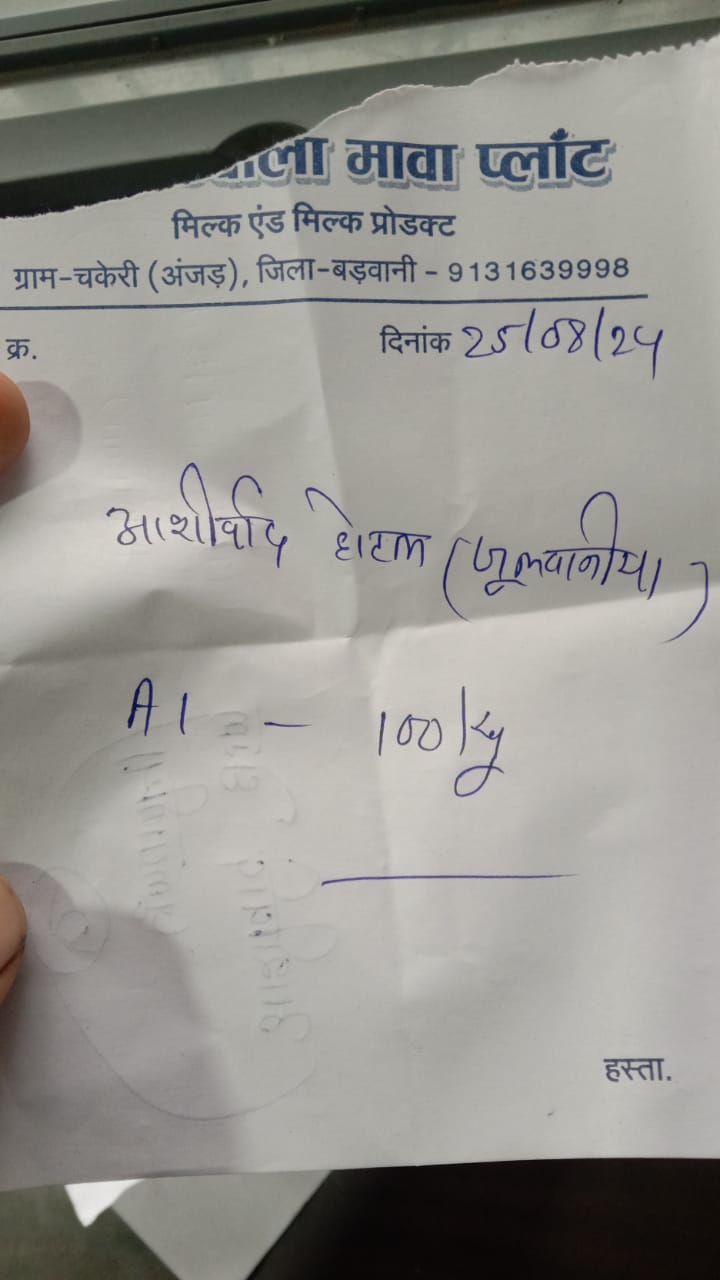 मावा प्लाँट
मिल्क एंड मिल्क प्रोडक्ट
ग्राम-चकेरी (अंजड़), जिला-बड़वानी - 9131639998
क्र.
दिनांक 25/08/24
आशीर्वाद होटल (जूलवानीया)
A1 - 100 kg
हस्ता.